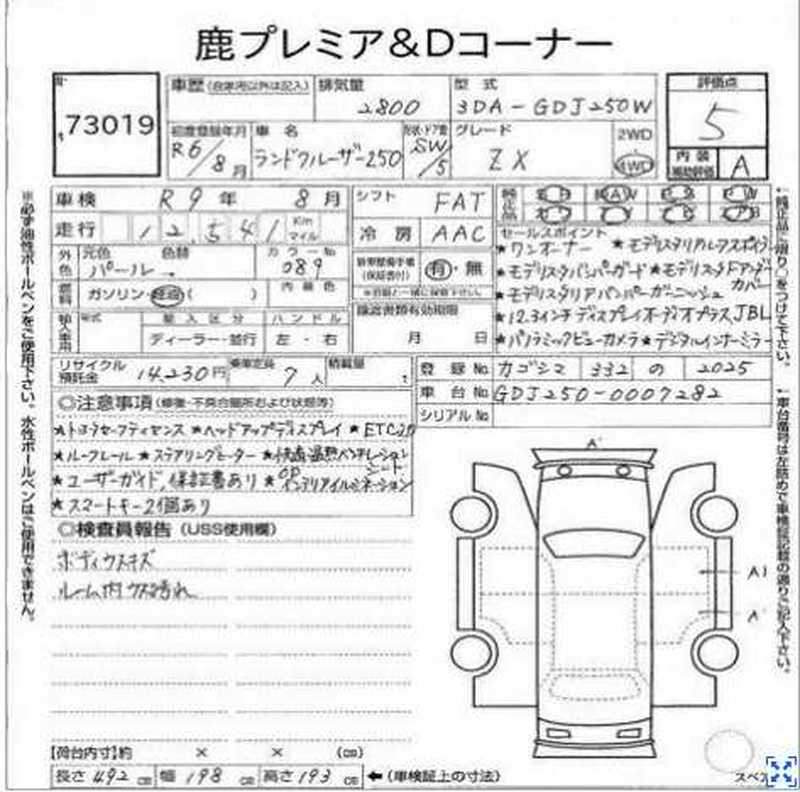 鹿プレミア&Dコーナー
73019
車歴 (自家用以外は記入)
排気量 2800
型式 3DA-GDJ250W
評価点 5
初度登録年月 R6/8月
車名 ランドクルーザー250
形状・ドア数 SW/5
グレード ZX
2WD
4WD
内装補助評価 A
車検 R9年 8月
シフト FAT
走行 12,541 Km マイル
冷房 AAC
外色 元色 パール
色替
カラーNo 089
内装色
燃料 ガソリン・軽油( )
新車整備手帳 (保証書付) 有・無
輸入車用 年式
輸入区分 ディーラー・並行
ハンドル 左・右
譲渡書類有効期限 月 日
純正品
セールスポイント
★ワンオーナー ★モデリスタリアルーフスポイラー
★モデリスタバンパーガード ★モデリスタFアンダーカバー
★モデリスタリアバンパーガーニッシュ
★12.3インチディスプレイオーディオプラス,JBL
★パノラミックビューカメラ ★デジタルインナーミラー
リサイクル預託金 14,230円
乗車定員 7人
積載量 t
登録No. カゴシマ 332 の 2025
車台No. GDJ250-0007282
シリアルNo.
◎注意事項 (修復・不具合箇所および状態等)
★トヨタセーフティセンス ★ヘッドアップディスプレイ ★ETC2.0
★ルーフレール ★ステアリングヒーター ★快適温熱ベンチレーションシート
★ユーザーガイド,保証書あり ★OPインテリアイルミネーション
★スマートキー2個あり
◎検査員報告 (USS使用欄)
ボディウスキズ
ルーム内ウス汚れ
A'
A1
A'
【荷台内寸】約 × × (cm)
長さ 492 cm 幅 198 cm 高さ 193 cm ←(車検証上の寸法)
スペア
※必ず油性ボールペンをご使用下さい。水性ボールペンはご使用できません。
←純正品に限り○をつけて下さい。
←車台番号は左詰めで車検証記載の通りご記入下さい。